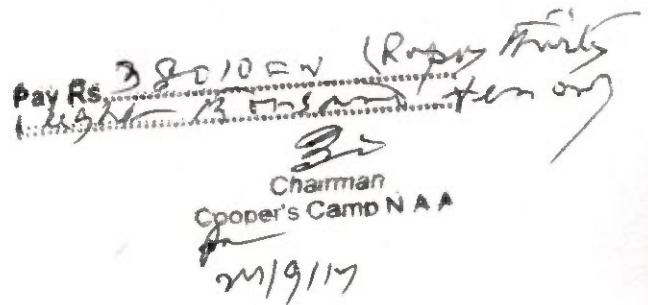 Pay Rs. 38010=00 (Rupees Thirty
Eight Thousand ten only
Chairman
Cooper's Camp N A A